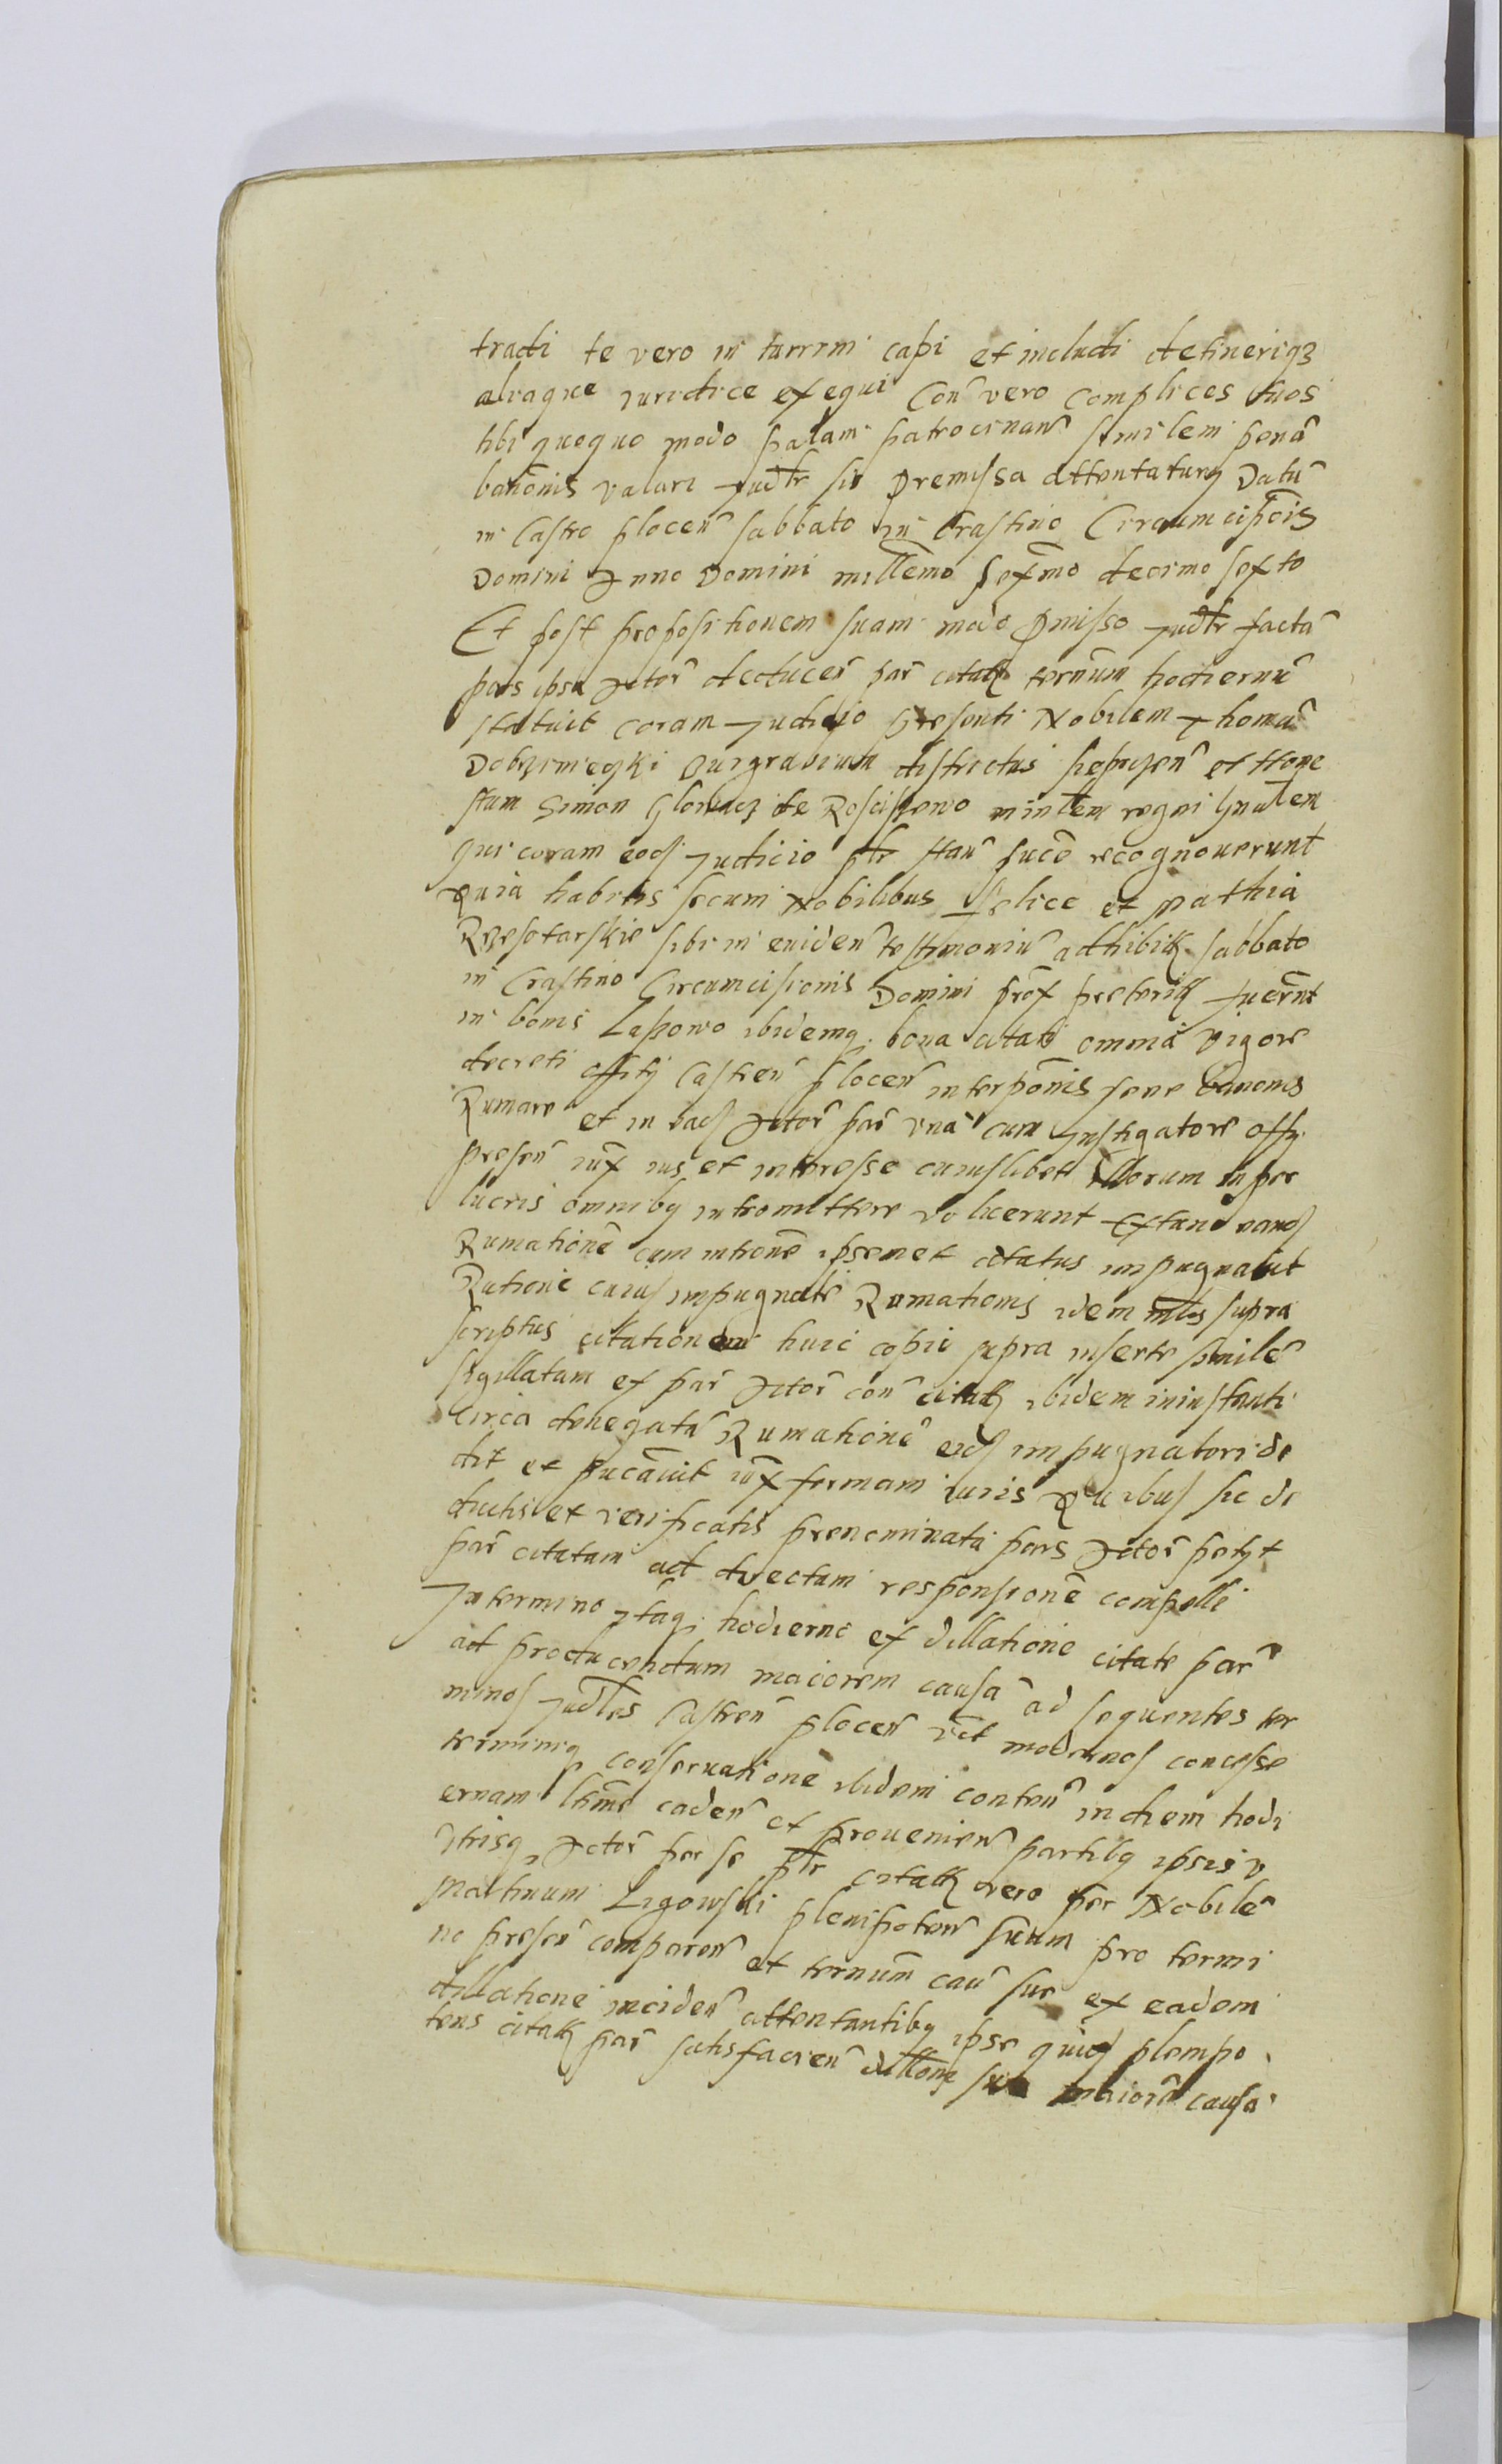 tradi te vero in turrim capi et includi detineriqz
aliaque iuridice exequi Con̄ vero complices tuos
tibi quoquo modo palam patrocinan̄ similem penā
banōnis valari Judr̄ sic premissa attentaturq Datū
in Castro plocen̄ sabbato in Crastino Circumcisiōis
Domini Anno Domini millēmo sexm̄o decimo sexto
Et post propositionem suam modo pmisso Judr̄ factā
pars ipsa Actor̄ deducen̄ par̄ citatae termīnum hodiernū
statuit coram Judicio presenti Nobilem Thomā
burgrabium districtus sieprcen̄ et Hone
stum Simon de Roscissewo minlem regni gnalem
qui coram eods Judicio pr̄ stan̄ sucē recognoverunt
Quia habitis secum Nobilibus Felice et Mathia
sibi in eviden̄ testimoniū adhibitis sabbato
in Crastino Circumcisionis Domini prox̄ preteritis fuerūnt
in bonis Laszowo ibidemq bona citati omnia vigore
decreti offitij Castren̄ plocen̄ interpōnis pene banonis
Rumare et in eads Actor̄ par̄ una cum Instigatore offij
presen̄ iux̄ ius et interesse cuiuslibet illorum super
lucris omnibq intromittere voluerunt Extunc eands
Rumationē cum introne ipsemet citatus impugnavit
Ratione cuius impugnate Rumationis idem supra
scriptus citationem huic copie supra inserte similē
sigillatam ex par̄ Actor̄ con̄ citatae ibidem in instanti
circa denegatā Rumationē eids impugnatori de
dit et pucāvit iux̄ formam iuris Quibus sic de
ductis et verificatis prenominata pars Actor̄ petijt
par̄ citatam ad directam responsionē compelli
In termino Itaq hodierno ex dillatione citate par̄
ad producendum maiorem causā ad sequentes ter
minos Judles Castren̄ plocen̄ vīdt modernos concesse
terminiq conservatione ibidem conten̄ in diem hodi
ernam l̄tīme caden̄ et provenien̄ partibq ipsis v
trisq Actor̄ per se pr̄ citatae vero per Nobilē
Martinum Ligowski plenipoten̄ suum pro termi
no presen̄ comparen̄ et termīnum cau̅ sue ex eadem
dilatione inciden̄ attentantibq ipse quids plenipo
tens citatae par̄ satisfacien̄ dillōni sue maiorē causā